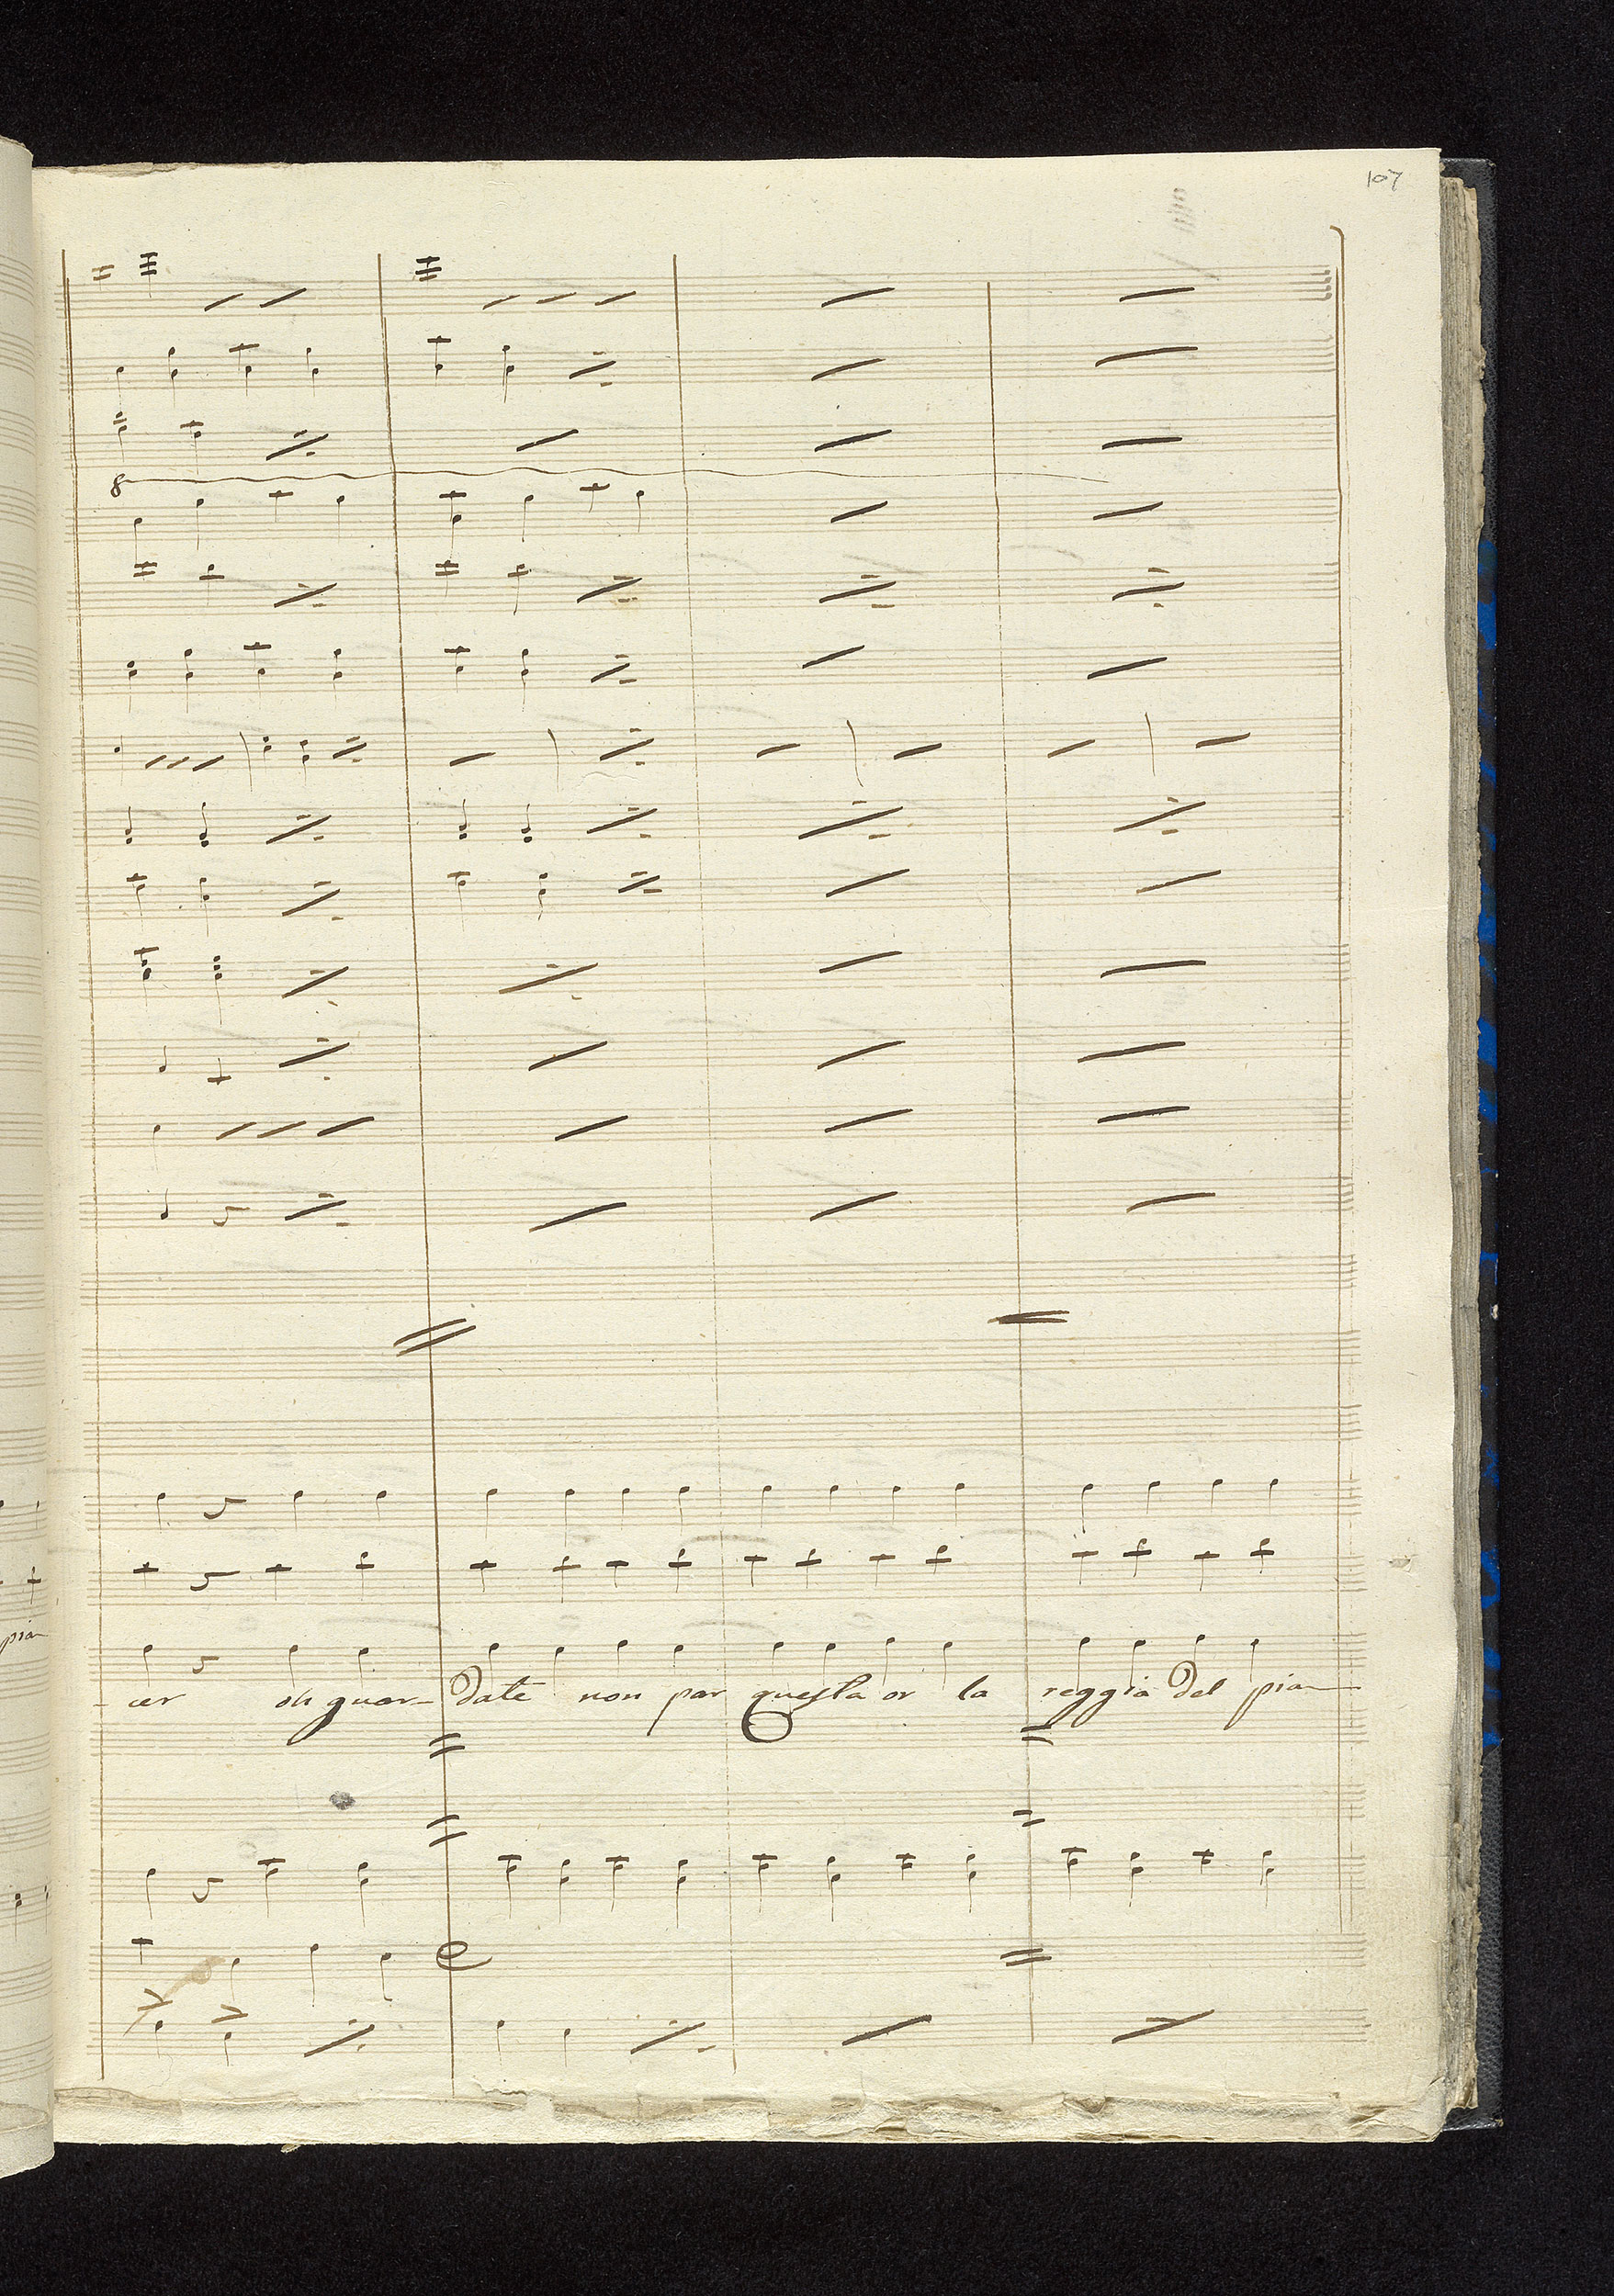 107
8
pia
cer oh guar- date non par questa or la reggia del pia